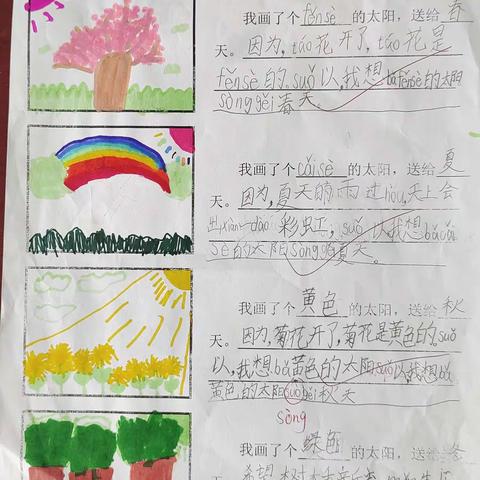 我画了个 fěnsè 的太阳，送给 春
天。因为，táo花开了，táo花是
fěnsè的，suǒ以，我想 bǎ fěnsè的太阳
sònggěi春天。
我画了个 cǎisè 的太阳，送给 夏
天。因为，夏天的雨过hòu，天上会
出xiàn一dào彩虹，suǒ以我想bǎcǎi
sè的太阳sòng给夏天。
我画了个 黄色 的太阳，送给 秋
天。因为，菊花开了，菊花是黄色的，suǒ
以，我想bǎ黄色的太阳suǒ以我想bǎ
黄色的太阳suògěi秋天
sòng
我画了个 绿色 的太阳，送给 冬
希望